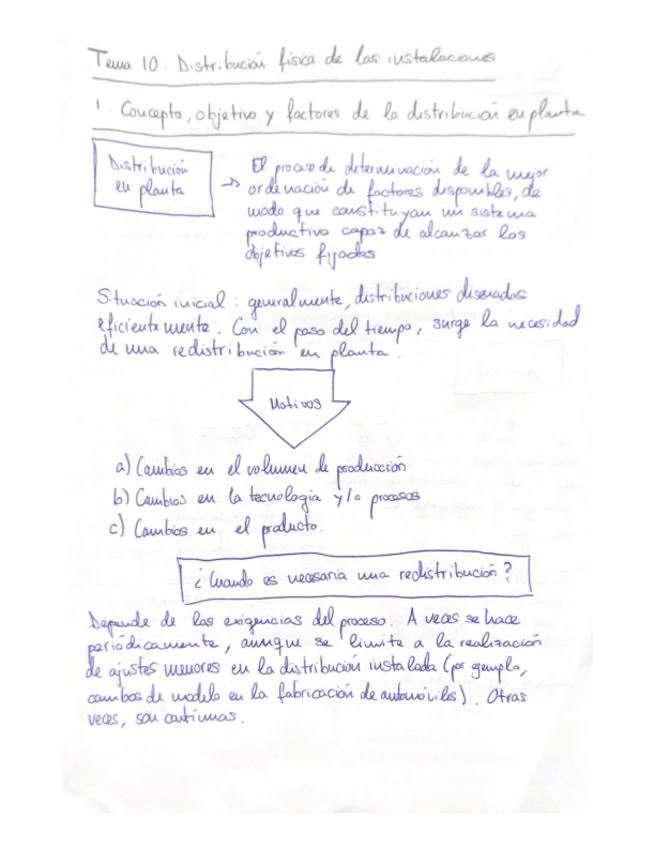 Tema 10: Distribución física de las instalaciones
1. Concepto, objetivo y factores de la distribución en planta
Distribución
en planta
→ El proceso de determinación de la mejor
ordenación de factores disponibles, de
modo que constituyan un sistema
productivo capaz de alcanzar los
objetivos fijados
Situación inicial: generalmente, distribuciones diseñadas
eficientemente. Con el paso del tiempo, surge la necesidad
de una redistribución en planta.
Motivos
a) Cambios en el volumen de producción
b) Cambios en la tecnología y/o procesos
c) Cambios en el producto.
¿Cuando es necesaria una redistribución?
Depende de las exigencias del proceso. A veces se hace
periódicamente, aunque se limite a la realización
de ajustes menores en la distribución instalada (por ejemplo,
cambios de modelo en la fabricación de automóviles). Otras
veces, son continuas.